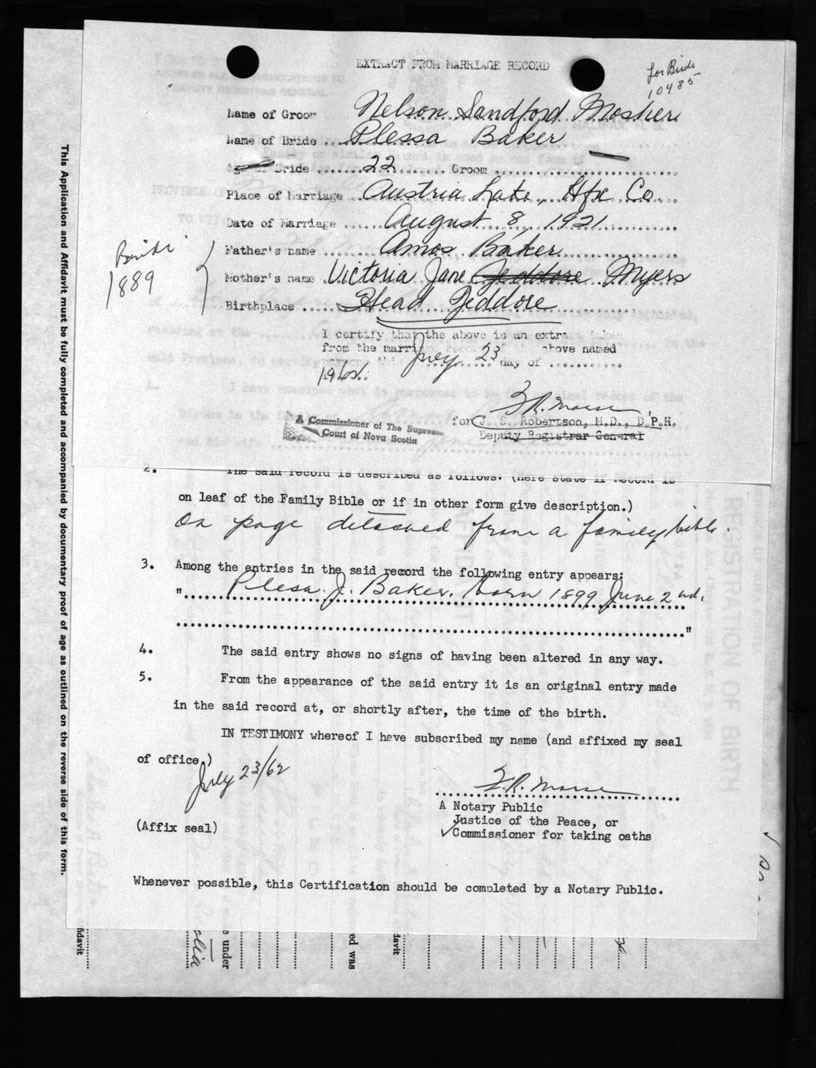 EXTRACT FROM MARRIAGE RECORD
for Bride
10485
Name of Groom Nelson Sandford Mosher
Name of Bride Plessa Baker
Age of Bride 22 Groom
Place of Marriage Austria Lake, Hfx Co.
Date of Marriage August 8, 1921
Father's name Amos Baker
Mother's name Victoria Jane Jeddore Myers
Birthplace Head Jeddore
Bride
1889
I certify that the above is an extra
from the marri above named
July 23 day of
1962
F.R. Morse
for J. S. Robertson, M.D., D.P.H.
Deputy Registrar General
A Commissioner of The Supreme
Court of Nova Scotia
2. The said record is described as follows. (Here state if Record is
on leaf of the Family Bible or if in other form give description.)
On page detached from a family bible.
3. Among the entries in the said record the following entry appears:
" Plesa J. Baker. born 1899 June 2nd.
"
4. The said entry shows no signs of having been altered in any way.
5. From the appearance of the said entry it is an original entry made
in the said record at, or shortly after, the time of the birth.
IN TESTIMONY whereof I have subscribed my name (and affixed my seal
of office.)
July 23/62
F.R. Morse
A Notary Public
Justice of the Peace, or
✓Commissioner for taking oaths
(Affix seal)
Whenever possible, this Certification should be completed by a Notary Public.
This Application and Affidavit must be fully completed and accompanied by documentary proof of age as outlined on the reverse side of this form.
REGISTRATION OF BIRTH
fidavit
e under
ed was
davit